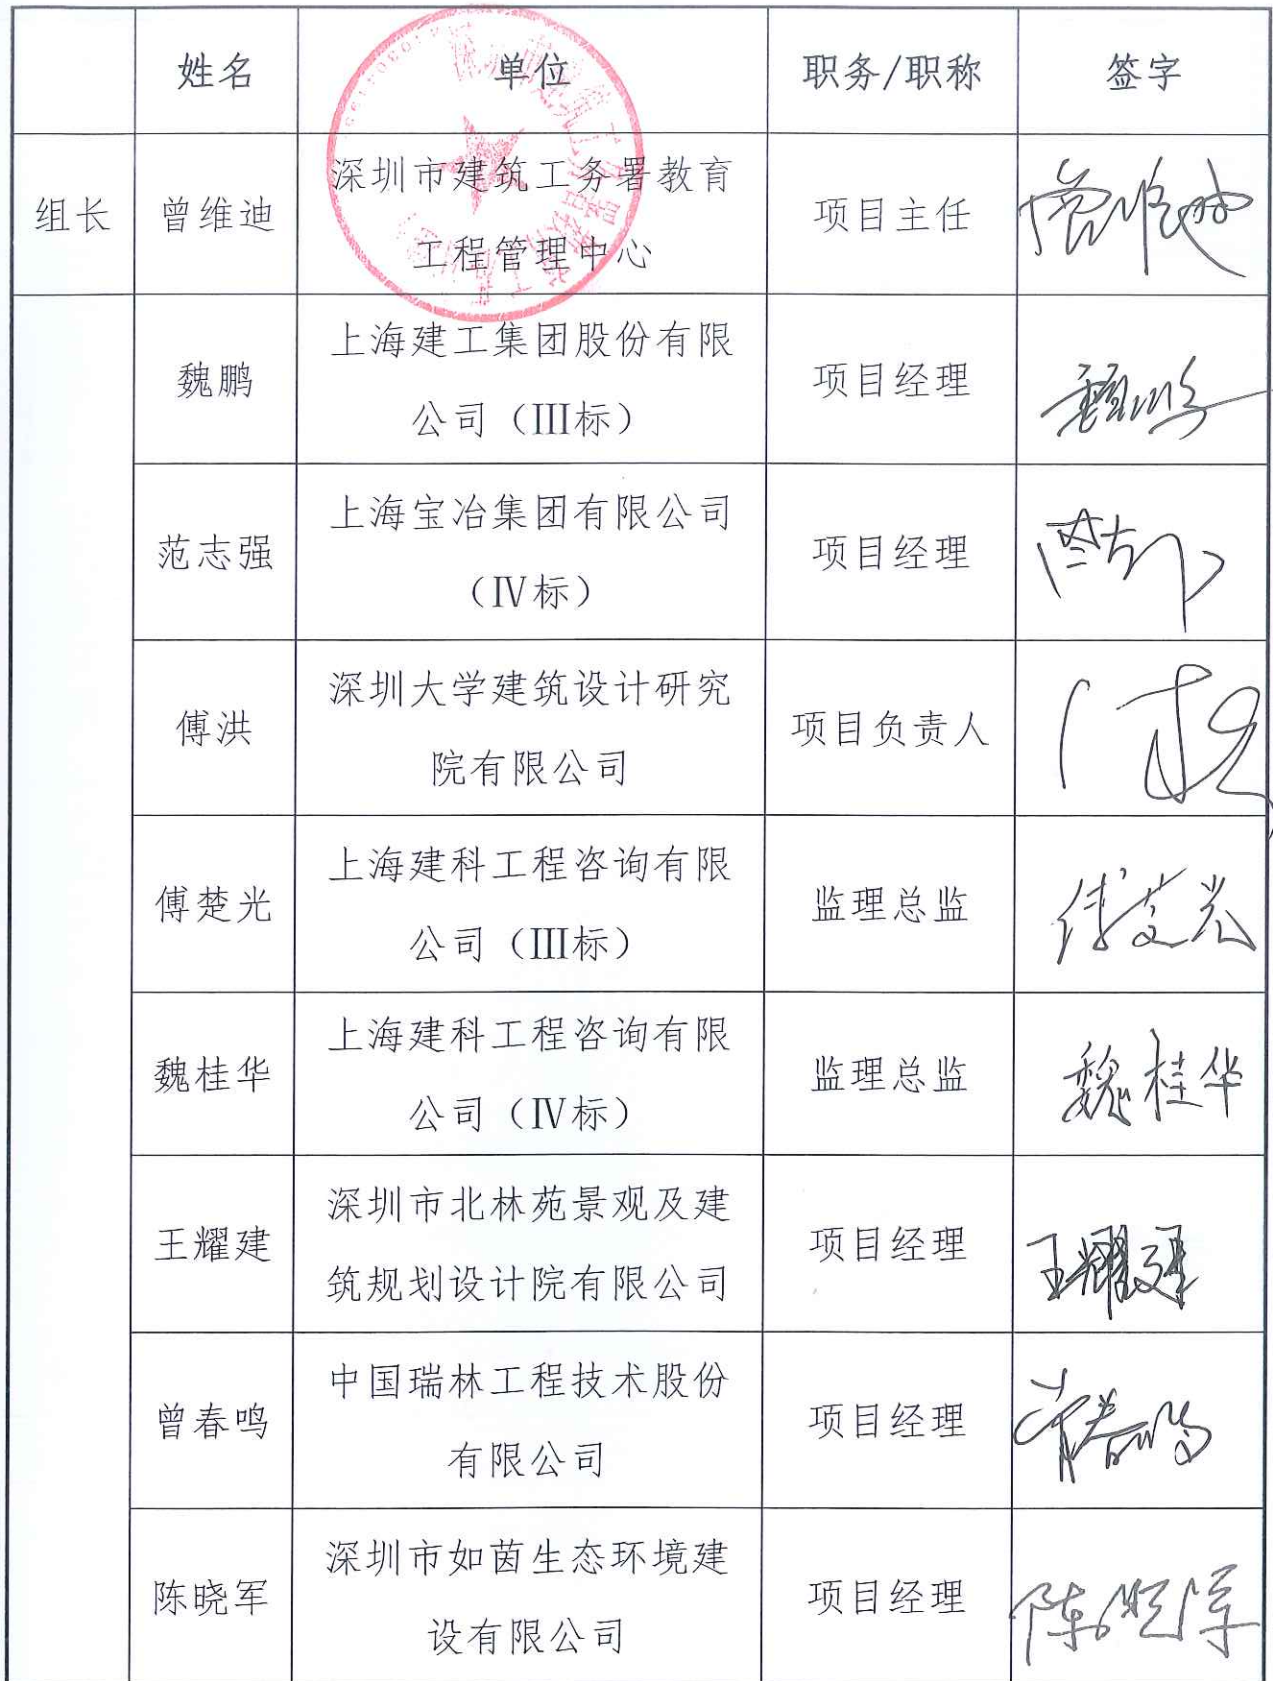 姓名 单位 职务/职称 签字
组长 曾维迪 深圳市建筑工务署教育
工程管理中心 项目主任 曾维迪
魏鹏 上海建工集团股份有限
公司（III标） 项目经理
范志强 上海宝冶集团有限公司
（IV标） 项目经理
傅洪 深圳大学建筑设计研究
院有限公司 项目负责人
傅楚光 上海建科工程咨询有限
公司（III标） 监理总监 傅楚光
魏桂华 上海建科工程咨询有限
公司（IV标） 监理总监 魏桂华
王耀建 深圳市北林苑景观及建
筑规划设计院有限公司 项目经理 王耀建
曾春鸣 中国瑞林工程技术股份
有限公司 项目经理 曾春鸣
陈晓军 深圳市如茵生态环境建
设有限公司 项目经理 陈晓军